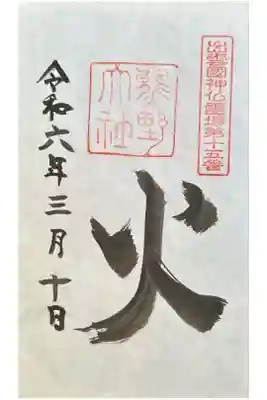 出雲國神仏霊場第十五番
熊野大社
火
令和六年三月十日